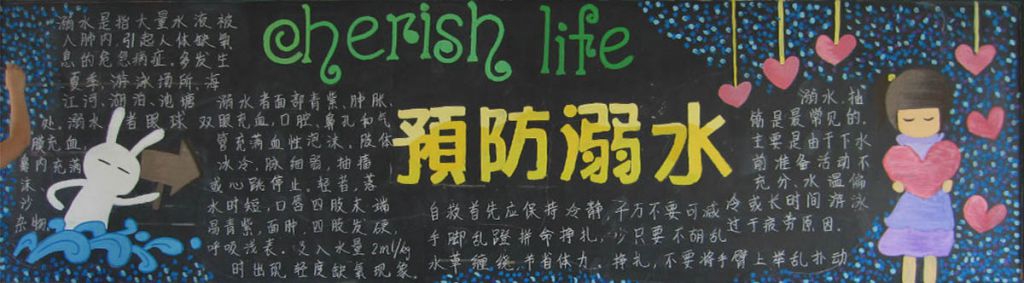 cherish life
預防溺水
溺水是指大量水液被
人肺内,引起人体缺氧
息的危急病症。多发生
夏季,游泳场所、海
江河、湖泊、池塘
处。溺水者眼球
膜充血,
鼻内充满
沫、
沙
杂物,
溺水者面部青紫、肿胀、
双眼充血,口腔、鼻孔和气
管充满血性泡沫。肢体
冰冷,脉细弱,抽搐
或心跳停止。轻者,落
水时短,口唇四肢末端
青紫,面肿,四肢发硬,
呼吸浅表。吸入水量2ml/kg
时出现轻度缺氧现象。
自救首先应保持冷静,千万不要
手脚乱蹬拼命挣扎,少只要不胡乱
水草缠绕,节省体力。挣扎,不要将手臂上举乱扑动
溺水、抽
搐是最常见的。
主要是由于下水
前准备活动不
充分、水温偏
冷或长时间游泳
过于疲劳原因。